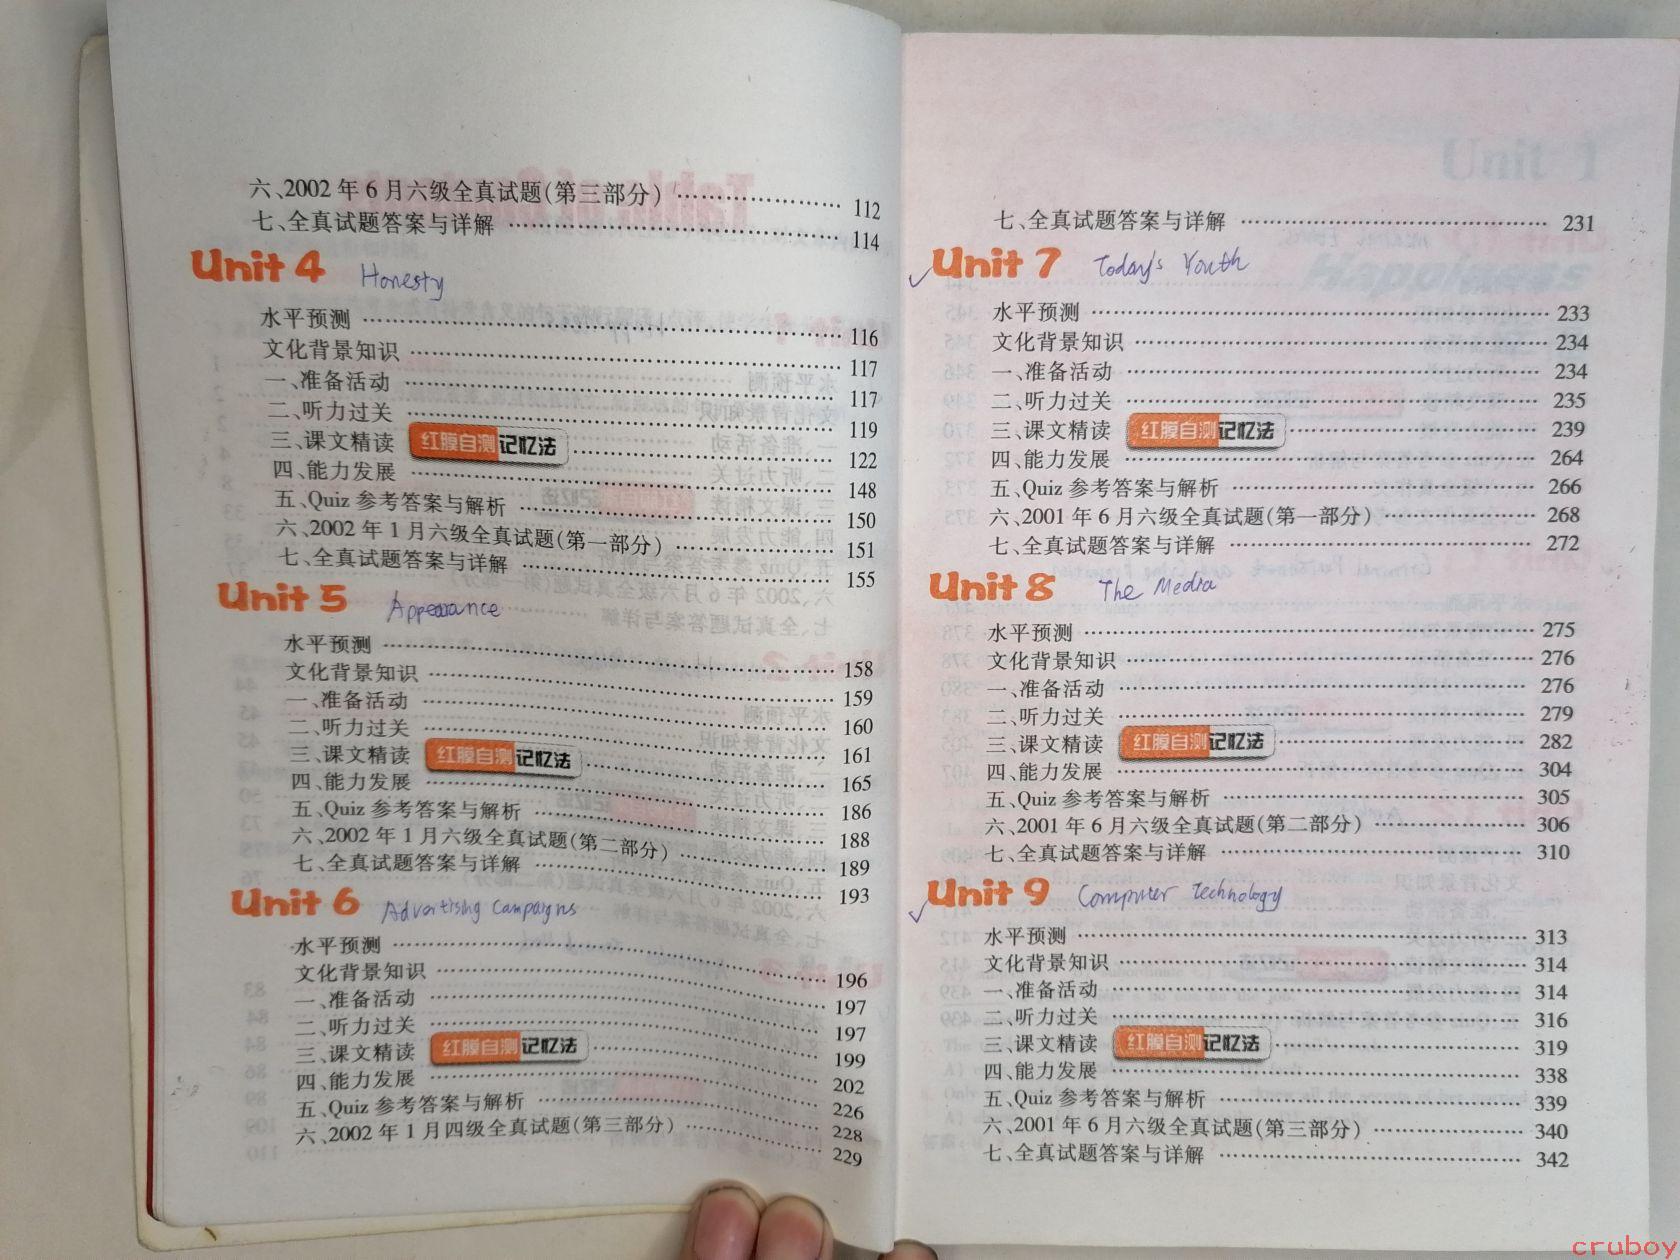 六、2002 年 6 月六级全真试题(第三部分) …… 112
七、全真试题答案与详解 …… 114
Unit 4 Honesty
水平预测 …… 116
文化背景知识 …… 117
一、准备活动 …… 117
二、听力过关 …… 119
三、课文精读 红膜自测记忆法 …… 122
四、能力发展 …… 148
五、Quiz 参考答案与解析 …… 150
六、2002 年 1 月六级全真试题(第一部分) …… 151
七、全真试题答案与详解 …… 155
Unit 5 Appearance
水平预测 …… 158
文化背景知识 …… 159
一、准备活动 …… 160
二、听力过关 …… 161
三、课文精读 红膜自测记忆法 …… 165
四、能力发展 …… 186
五、Quiz 参考答案与解析 …… 188
六、2002 年 1 月六级全真试题(第二部分) …… 189
七、全真试题答案与详解 …… 193
Unit 6 Advertising Campaigns
水平预测 …… 196
文化背景知识 …… 197
一、准备活动 …… 197
二、听力过关 …… 199
三、课文精读 红膜自测记忆法 …… 202
四、能力发展 …… 226
五、Quiz 参考答案与解析 …… 228
六、2002 年 1 月四级全真试题(第三部分) …… 229
七、全真试题答案与详解 …… 231
Unit 7 Today's Youth
水平预测 …… 233
文化背景知识 …… 234
一、准备活动 …… 234
二、听力过关 …… 235
三、课文精读 红膜自测记忆法 …… 239
四、能力发展 …… 264
五、Quiz 参考答案与解析 …… 266
六、2001 年 6 月六级全真试题(第一部分) …… 268
七、全真试题答案与详解 …… 272
Unit 8 The Media
水平预测 …… 275
文化背景知识 …… 276
一、准备活动 …… 276
二、听力过关 …… 279
三、课文精读 红膜自测记忆法 …… 282
四、能力发展 …… 304
五、Quiz 参考答案与解析 …… 305
六、2001 年 6 月六级全真试题(第二部分) …… 306
七、全真试题答案与详解 …… 310
Unit 9 Computer Technology
水平预测 …… 313
文化背景知识 …… 314
一、准备活动 …… 314
二、听力过关 …… 316
三、课文精读 红膜自测记忆法 …… 319
四、能力发展 …… 338
五、Quiz 参考答案与解析 …… 339
六、2001 年 6 月六级全真试题(第三部分) …… 340
七、全真试题答案与详解 …… 342
cruboy